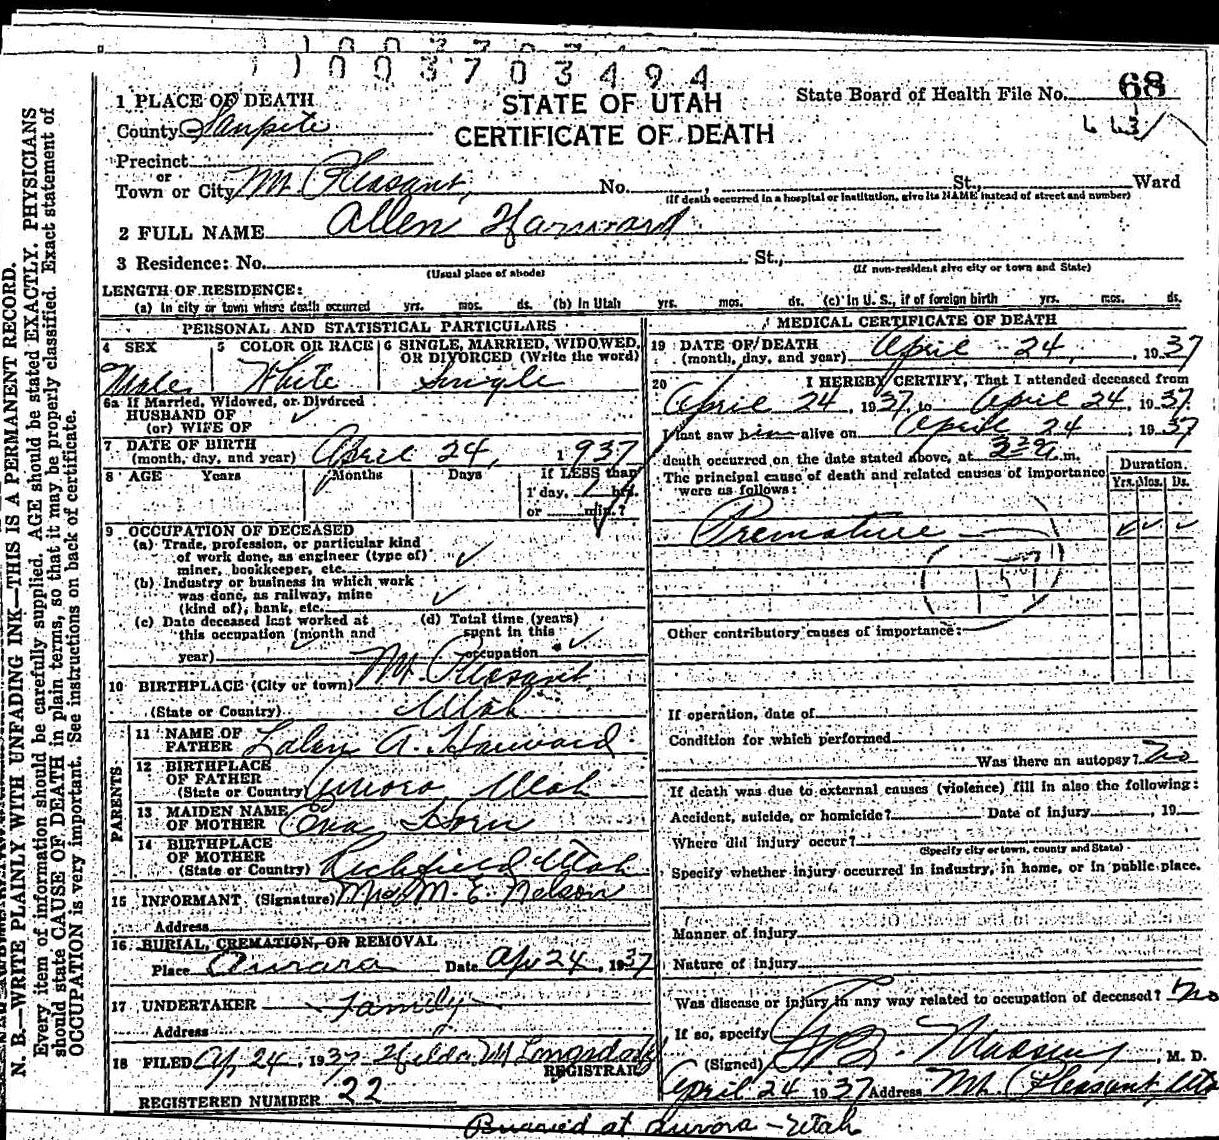 1003703494
STATE OF UTAH
CERTIFICATE OF DEATH
State Board of Health File No. 68
1 PLACE OF DEATH
County Sanpete
Precinct
or
Town or City Mt Pleasant, No. , St., Ward
(If death occurred in a hospital or institution, give its NAME instead of street and number)
2 FULL NAME Allen Harward
3 Residence: No. St.,
(Usual place of abode) (If non-resident give city or town and State)
LENGTH OF RESIDENCE:
(a) In city or town where death occurred yrs. mos. ds. (b) In Utah yrs. mos. ds. (c) In U. S., if of foreign birth yrs. mos. ds.
PERSONAL AND STATISTICAL PARTICULARS
4 SEX
Male
5 COLOR OR RACE
White
6 SINGLE, MARRIED, WIDOWED,
OR DIVORCED (Write the word)
Single
6a If Married, Widowed, or Divorced
HUSBAND OF
(or) WIFE OF
7 DATE OF BIRTH
(month, day, and year) April 24, 1937
8 AGE Years Months Days If LESS than
1 day, hrs.
or min.?
9 OCCUPATION OF DECEASED
(a) Trade, profession, or particular kind
of work done, as engineer (type of)
miner, bookkeeper, etc. ✓
(b) Industry or business in which work
was done, as railway, mine
(kind of), bank, etc. ✓
(c) Date deceased last worked at
this occupation (month and
year)
(d) Total time (years)
spent in this
occupation ✓
10 BIRTHPLACE (City or town) Mt. Pleasant
(State or Country) Utah
PARENTS
11 NAME OF
FATHER Lalen A. Harward
12 BIRTHPLACE
OF FATHER
(State or Country) Aurora Utah
13 MAIDEN NAME
OF MOTHER Eva Horn
14 BIRTHPLACE
OF MOTHER
(State or Country) Richfield Utah
15 INFORMANT (Signature) Mrs M. E. Nelson
Address
16 BURIAL, CREMATION, OR REMOVAL
Place Aurora Date Apr 24, 1937
17 UNDERTAKER Family
Address
18 FILED Ap, 24, 1937 Hilda M Longsdorf
REGISTRAR
REGISTERED NUMBER 22
MEDICAL CERTIFICATE OF DEATH
19 DATE OF DEATH
(month, day, and year) April 24, 1937
20 I HEREBY CERTIFY, That I attended deceased from
April 24, 1937, to April 24, 1937.
I last saw him alive on April 24, 1937
death occurred on the date stated above, at m.
The principal cause of death and related causes of importance
were as follows:
Duration
Yrs. Mos. Ds.
Premature ✓ ✓ ✓
Other contributory causes of importance:
If operation, date of
Condition for which performed
Was there an autopsy? No
If death was due to external causes (violence) fill in also the following:
Accident, suicide, or homicide? Date of injury , 19
Where did injury occur?
(Specify city or town, county and State)
Specify whether injury occurred in industry, in home, or in public place.
Manner of injury
Nature of injury
Was disease or injury in any way related to occupation of deceased? No
If so, specify
(Signed) , M. D.
April 24 1937 Address Mt. Pleasant, Utah
Buried at Aurora - Utah
N. B.—WRITE PLAINLY WITH UNFADING INK—THIS IS A PERMANENT RECORD.
Every item of information should be carefully supplied. AGE should be stated EXACTLY. PHYSICIANS
should state CAUSE OF DEATH in plain terms, so that it may be properly classified. Exact statement of
OCCUPATION is very important. See instructions on back of certificate.